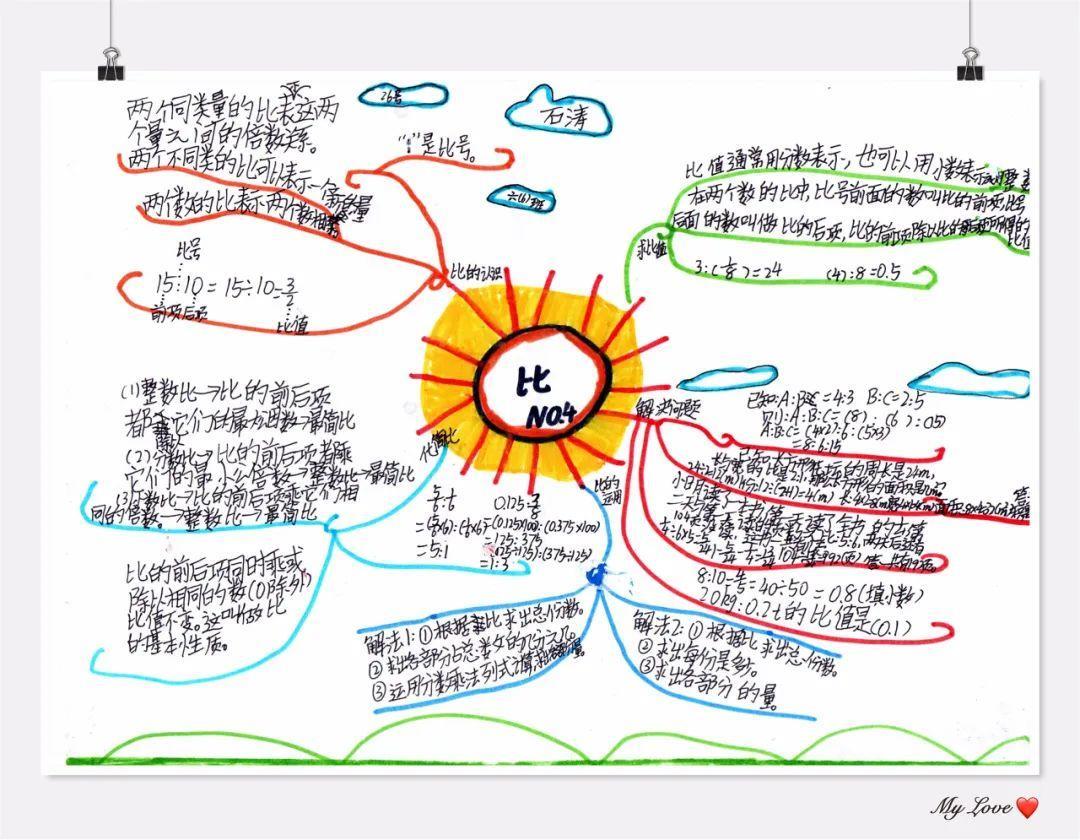 两个同类量的比表示这两
个量之间的倍数关系。
两个不同类的比可以表示一个新的量
两个数的比表示两个数相除
"："是比号。
26号
石涛
六(6)班
比的认识
比号
15:10=15÷10=3/2
前项 后项
比值
比值通常用分数表示，也可以用小数表示或整数
在两个数的比中，比号前面的数叫比的前项，比号
后面的数叫做比的后项，比的前项除以比的后项所得的
比值
求比值
3:(1/8)=24
(4):8=0.5
比
NO.4
解决问题
B:C=2:5
则:A:B:C=(8):(6):(15)
A:B:C=(4×2):6:(5×3)
=8:6:15
8:10=4/5=40÷50=0.8(填小数)
20kg:0.2t的比值是(0.1)
化简比
(1)整数比→比的前后项
都 它们的最大公因数→最简比
(2)分数比→比的前后项都乘
它们的最小公倍数→整数比→最简比
(3)小数比→比的前后项乘它们相
同的倍数。→整数比→最简比
比的前后项同时乘或
除以相同的数(0除外)
比值不变。这叫做比
的基本性质。
=5:1
=(0.125×1000):(0.375×1000)
=125:375
=(125÷125):(375÷125)
=1:3
比的
运用
解法1:①根据 比求出总份数。
②求出各部分占总数的几分之几。
③运用分数乘法列式计算求出各部分量
解法2:①根据比求出总份数。
②求出每份是多少。
③求出各部分的量。
My Love